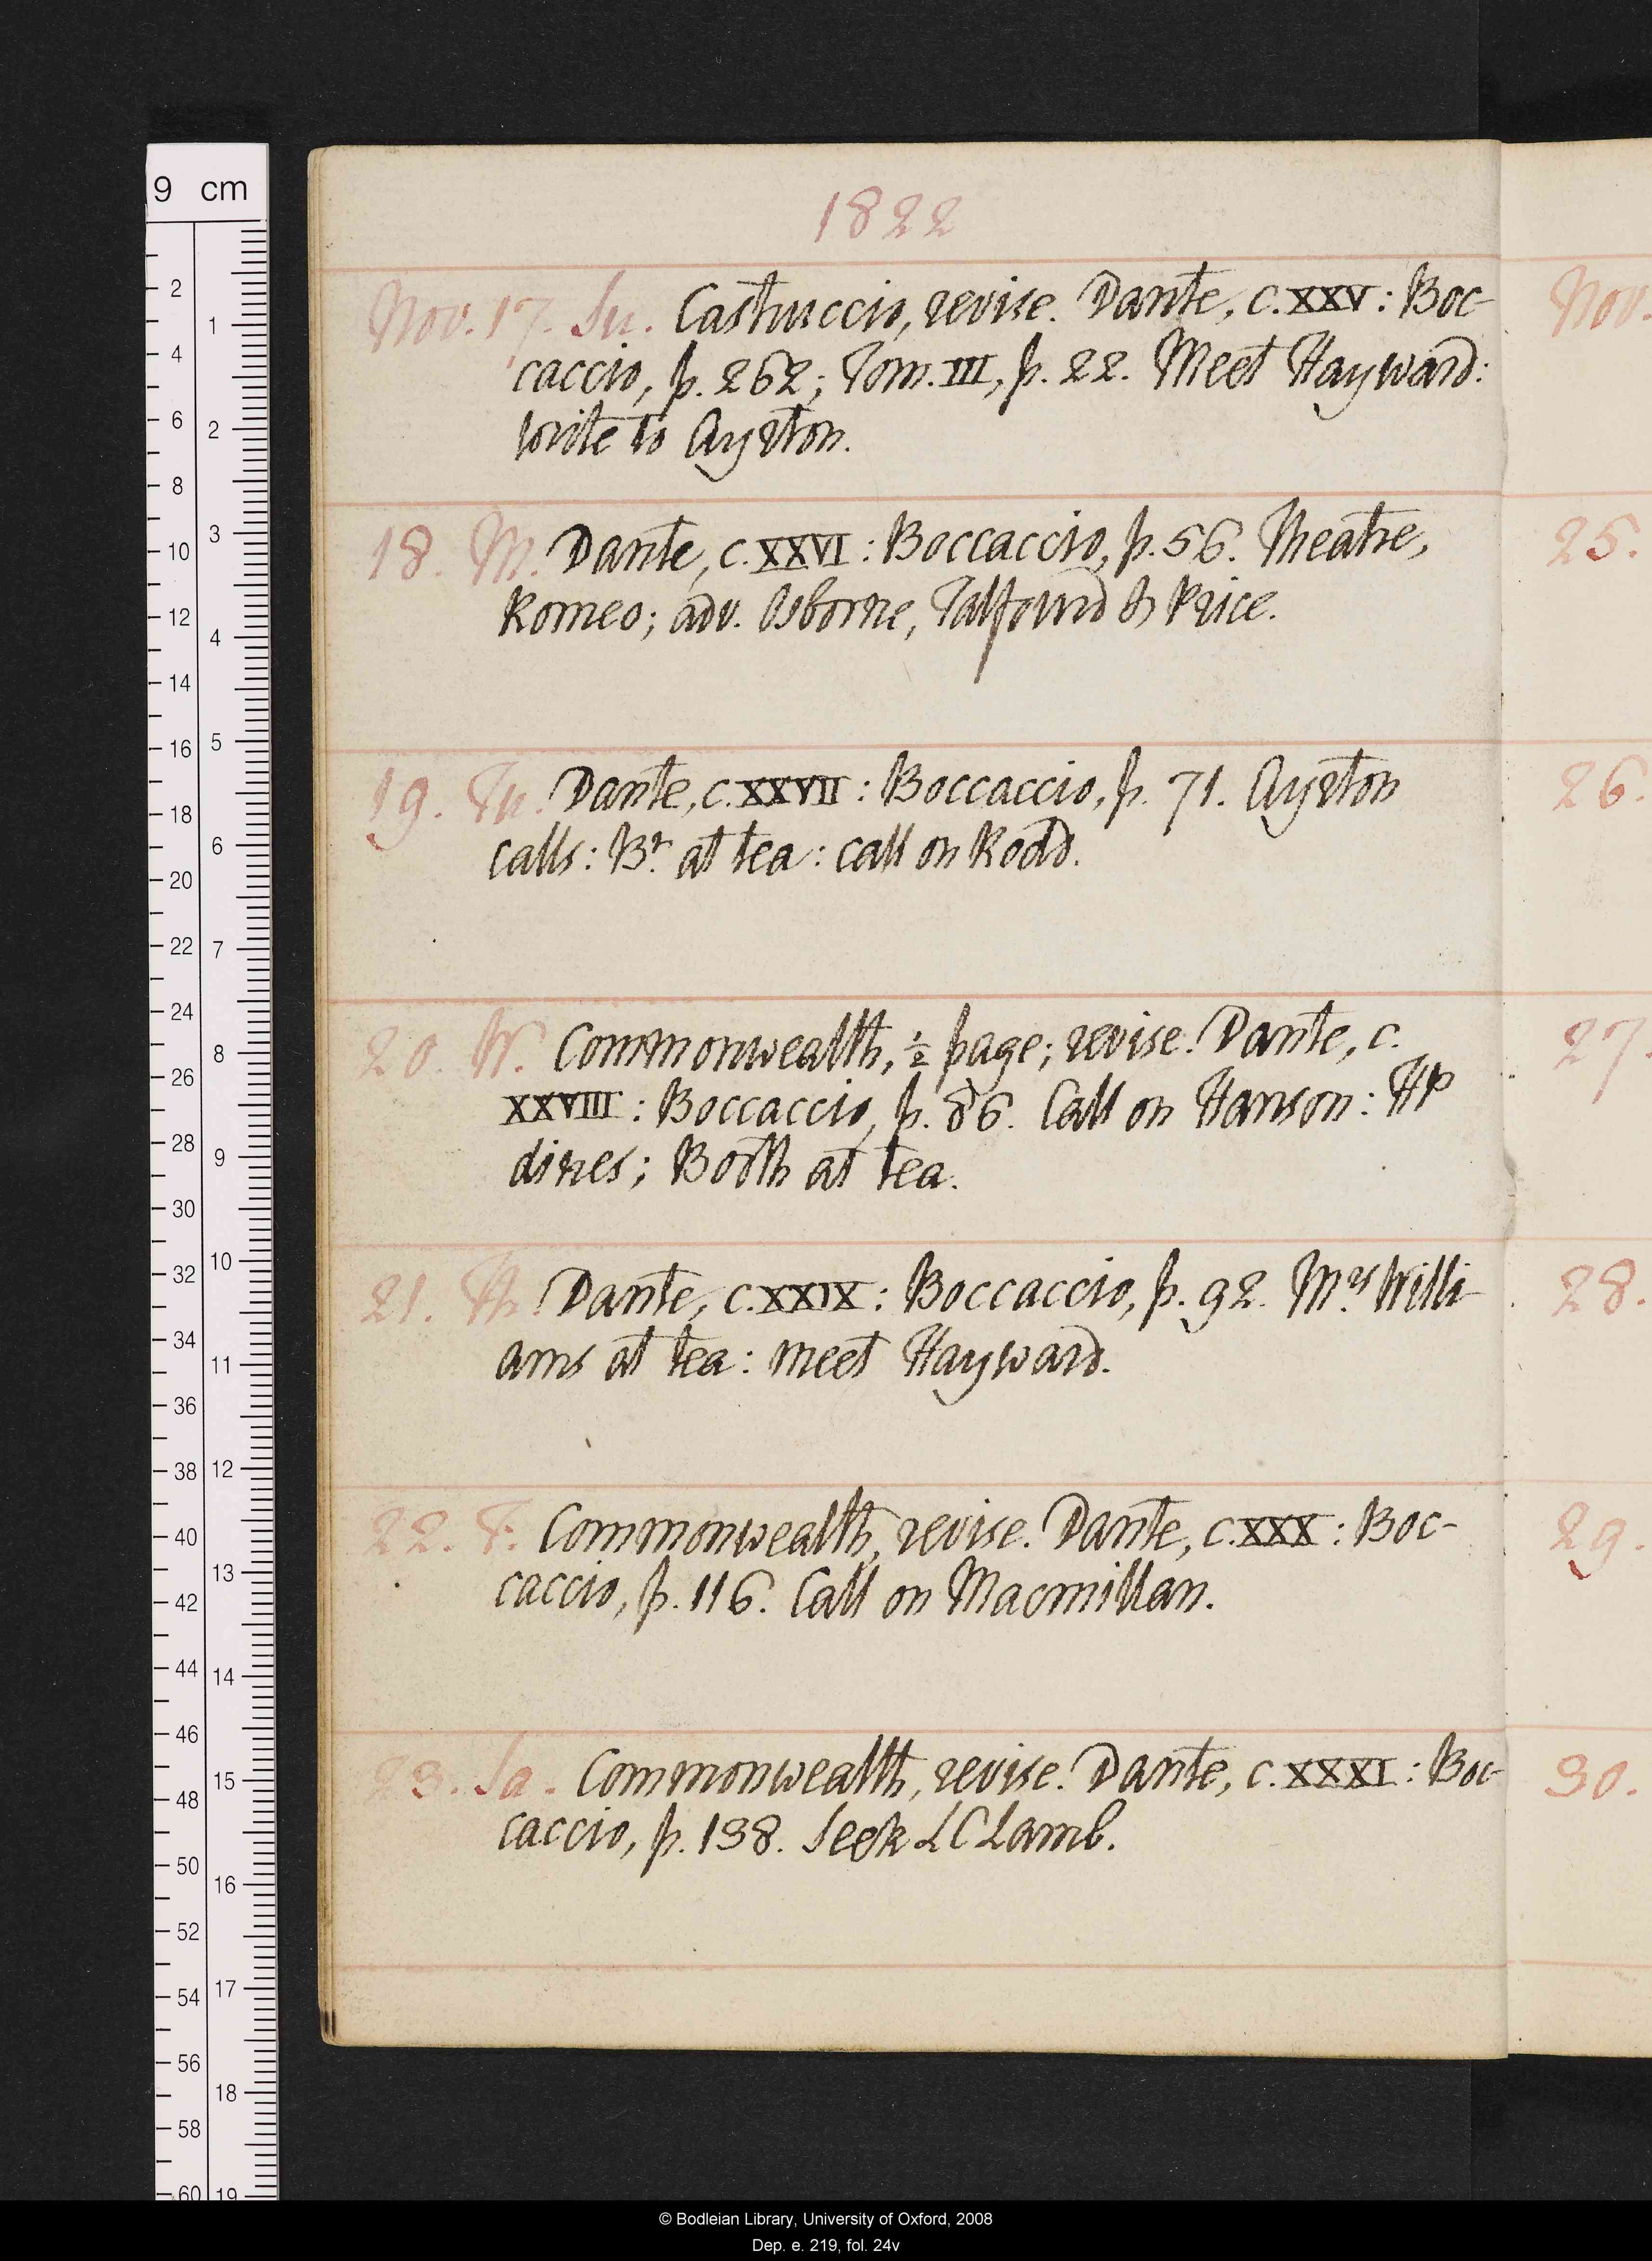 1822
Nov. 17. Su. Castruccio, revise. Dante, c. XXV: Boc-
caccio, p. 262; Tom. III, p. 22. Meet Hayward:
write to Ayrton.
18. M. Dante, c. XXVI: Boccaccio, p. 56. Theatre,
Romeo; adv. Osborne, Talfourd & Price.
19. Tu. Dante, c. XXVII: Boccaccio, p. 71. Ayrton
calls: Br. at tea: call on Rodd.
20. W. Commonwealth, ½ page; revise. Dante, c.
XXVIII: Boccaccio, p. 86. Call on Hanson: HP
dines; Booth at tea.
21. Th. Dante, c. XXIX: Boccaccio, p. 92. Mrs Willi-
ams at tea: meet Hayward.
22. F. Commonwealth, revise. Dante, c. XXX: Boc-
caccio, p. 116. Call on Macmillan.
23. Sa. Commonwealth, revise. Dante, c. XXXI: Boc-
caccio, p. 138. Seek LC Lamb.
Nov.
25.
26.
27.
28.
29.
30.
9 cm
2
4
6
8
10
12
14
16
18
20
22
24
26
28
30
32
34
36
38
40
42
44
46
48
50
52
54
56
58
60
1
2
3
4
5
6
7
8
9
10
11
12
13
14
15
16
17
18
19
© Bodleian Library, University of Oxford, 2008
Dep. e. 219, fol. 24v